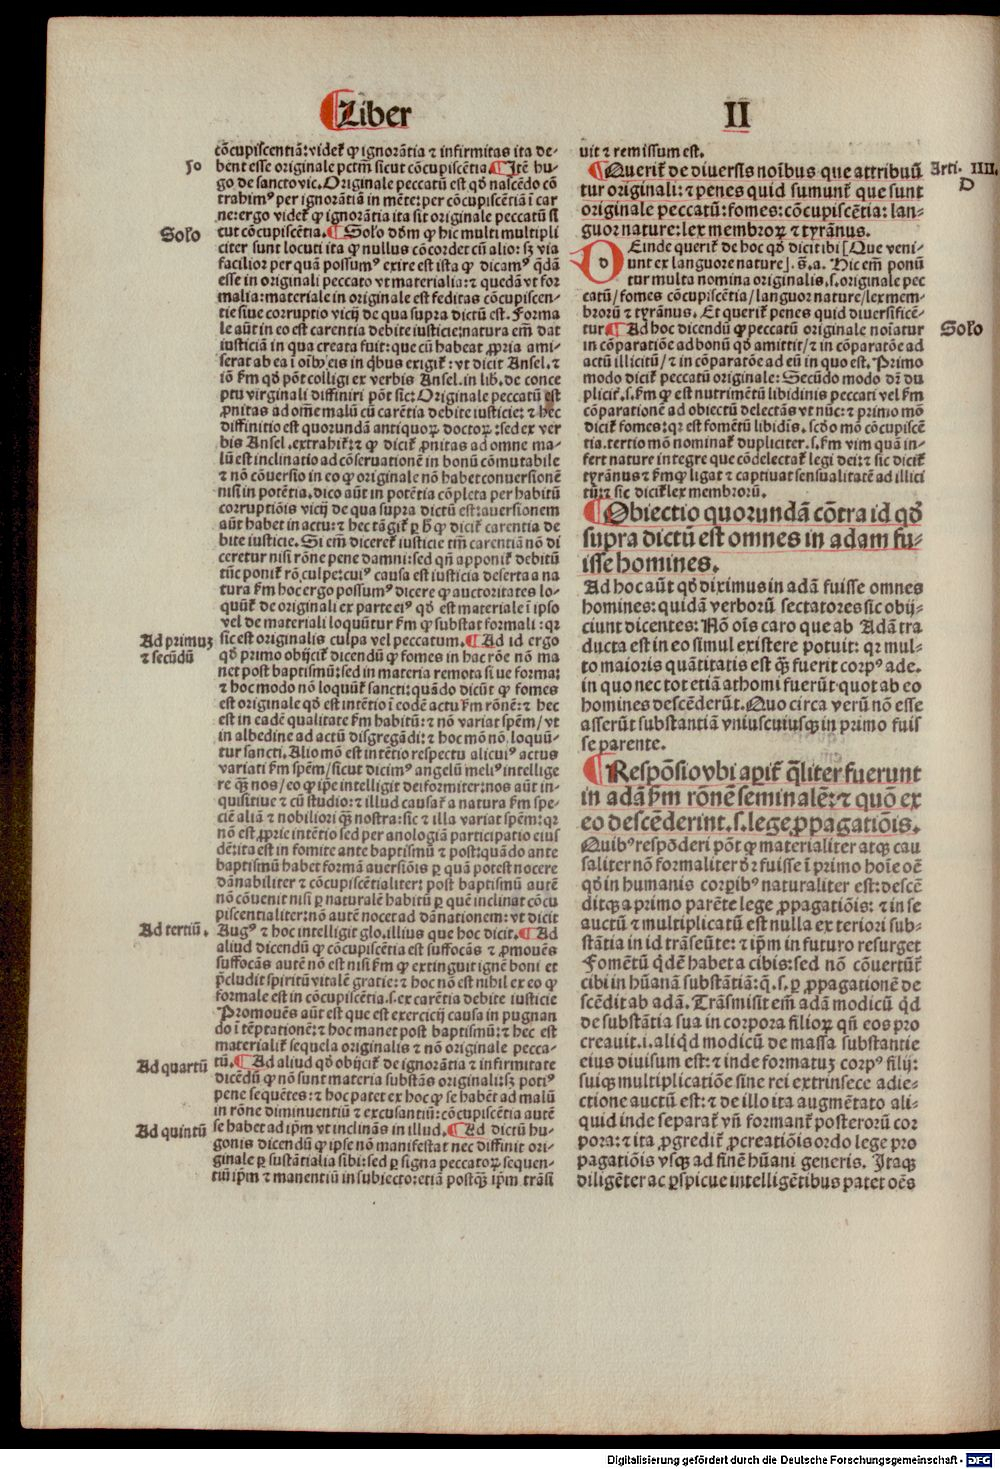 Liber
II
cōcupiscentiā: videtꝛ ꝙ ignorātia ⁊ infirmitas ita de-
bent esse originale pctm̄ sicut cōcupiscētia. ¶ Itē hu-
go de sancto vic. Originale peccatū est qd̄ nascēdo cō
trahimꝰ per ignorātiā in mēte: per cōcupiscētiā ī car
ne: ergo videtꝛ ꝙ ignorātia ita sit originale peccatū si
cut cōcupiscētia. ¶ Solo dōm ꝙ hic multi multipli
citer sunt locuti ita ꝙ nullus cōcordet cū alio: sꝫ via
facilior per quā possumꝰ exire est ista ꝙ dicamꝰ qd̄ā
esse in originali peccato vt materialia: ⁊ quedā vt for
malia: materiale in originale est feditas cōcupiscen-
tie siue corruptio vicij de qua supra dictū est. Forma
le aūt in eo est carentia debite iusticie: natura em̄ dat
iusticiā in qua creata fuit: que cū habeat ꝓpria ami-
serat ab ea ī oībꝰ eis in qbus exigitꝛ: vt dicit Ansel. ⁊
iō km̄ qd̄ pōt colligi ex verbis Ansel. in lib. de conce
ptu virginali diffiniri pōt sic: Originale peccatū est
ꝓnitas ad om̄e malū cū carētia debite iusticie: ⁊ hec
diffinitio est quorundā antiquoꝝ doctoꝝ: sed ex ver
bis Ansel. extrahitꝛ: ⁊ ꝙ dicitꝛ ꝓnitas ad omne ma-
lū est inclinatio ad cōseruationē in bonū cōmutabile
⁊ nō cōuersio in eo ꝙ originale nō habet conuersionē
nisi in potētia. dico aūt in potētia cōpleta per habitū
corruptiōis vicij de qua supra dictū est: auersionem
aūt habet in actu: ⁊ hec tāgitꝛ ꝑ h̄ ꝙ dicitꝛ carentia de
bite iusticie. Si em̄ diceretꝛ iusticie tm̄ carentiā nō di
ceretur nisi rōne pene damni: sed qn̄ apponitꝛ debitū
tūc ponitꝛ rō culpe: cuiꝰ causa est iusticia deserta a na
tura km̄ hoc ergo possumꝰ dicere ꝙ auctoritates lo-
quūtꝛ de originali ex parte eiꝰ qd̄ est materiale ī ipso
vel de materiali loquūtur km̄ ꝙ substat formali: qꝛ
sic est originalis culpa vel peccatum. ¶ Ad id ergo
qd̄ primo obijcitꝛ dicendū ꝙ fomes in hac rōe nō ma
net post baptismū: sed in materia remota siue forma:
⁊ hoc modo nō loquūtꝛ sancti: quādo dicūt ꝙ fomes
est originale qd̄ est intētio ī eodē actu km̄ rōnē: ⁊ hec
est in eadē qualitate km̄ habitū: ⁊ nō variat spēm/ vt
in albedine ad actū disgregādi: ⁊ hoc mō nō loquū-
tur sancti. Alio mō est intētio respectu alicuiꝰ actus
variati km̄ spēm/ sicut dicimꝰ angelū meliꝰ intellige
re qꝫ nos/ eo ꝙ ipe intelligit deiformiter: nos aūt in-
quisitiue ⁊ cū studio: ⁊ illud causatꝛ a natura km̄ spe-
ciē aliā ⁊ nobiliori qꝫ nostra: sic ⁊ illa variat spēm: qꝛ
nō est ꝓprie intētio sed per anologiā participatio eius
dē: ita est in fomite ante baptismū ⁊ post: quādo ante
baptismū habet formā auersiōis ꝑ quā potest nocere
dānabiliter ⁊ cōcupiscētialiter: post baptismū autē
nō cōuenit nisi ꝑ naturalē habitū ꝑ quē inclinat cōcu
piscentialiter: nō autē nocet ad dānationem: vt dicit
Augꝰ ⁊ hoc intelligit glo. illius que hoc dicit. ¶ Ad
aliud dicendū ꝙ cōcupiscētia est suffocās ⁊ ꝓmouēs
suffocās autē nō est nisi km̄ ꝙ extinguit ignē boni et
p̄cludit spiritū vitalē gratie: ⁊ hoc nō est nihil ex eo ꝙ
formale est in cōcupiscētia. s. ex carētia debite iusticie
Promouēs aūt est que est exercicij causa in pugnan
do ī tēptationē: ⁊ hoc manet post baptismū: ⁊ hec est
materialitꝛ sequela originalis ⁊ nō originale pecca-
tū. ¶ Ad aliud qd̄ obijcitꝛ de ignorātia ⁊ infirmitate
dicēdū ꝙ nō sunt materia substās originali: sꝫ potiꝰ
pene sequētes: ⁊ hoc patet ex hoc ꝙ se habēt ad malū
in rōne diminuentiū ⁊ excusantiū: cōcupiscētia autē
se habet ad ip̄m vt inclinās in illud. ¶ Ad dictū hu-
gonis dicendū ꝙ ipse nō manifestat nec diffinit ori-
ginale ꝑ sustātialia sibi: sed ꝑ signa peccatoꝝ sequen-
tiū ip̄m ⁊ manentiū in subiecto: etiā postqꝫ ip̄m trāsi
50
Solo
Ad primuꝫ
⁊ secūdū
Ad tertiū.
Ad quartū
Ad quintū
uit ⁊ remissum est.
¶ Queritꝛ de diuersis noībus que attribuū
tur originali: ⁊ penes quid sumuntꝛ que sunt
originale peccatū: fomes: cōcupiscētia: lan-
guor nature: lex membroꝝ ⁊ tyrānus.
DEinde queritꝛ de hoc qd̄ dicit ibi [Que veni-
unt ex languore nature]. §. a. Hic em̄ ponū
tur multa nomina originalis. s. originale pec
catū/ fomes cōcupiscētia/ languor nature/ lex mem-
brorū ⁊ tyrānus. Et queritꝛ penes quid diuersificē-
tur. ¶ Ad hoc dicendū ꝙ peccatū originale noīatur
in cōparatiōe ad bonū qd̄ amittit/ ⁊ in cōparatōe ad
actū illicitū/ ⁊ in cōparatōe ad eū in quo est. Primo
modo dicitꝛ peccatū originale: Secūdo modo dr̄ du
plicitꝛ. s. km̄ ꝙ est nutrimētū libidinis peccati vel km̄
cōparationē ad obiectū delectās vt nūc: ⁊ primo mō
dicitꝛ fomes: qꝛ est fomētū libidīs. scdo mō cōcupiscē
tia. tertio mō nominatꝛ dupliciter. s. km̄ vim quā in-
fert nature integre que cōdelectatꝛ legi dei: ⁊ sic dicitꝛ
tyrānus ⁊ km̄ ꝙ ligat ⁊ captiuat sensualitatē ad illici
tū: ⁊ sic dicitꝛ lex membrorū.
¶ Obiectio quorundā cōtra id qd̄
supra dictū est omnes in adam fu-
isse homines.
Ad hoc aūt qd̄ diximus in adā fuisse omnes
homines: quidā verborū sectatores sic obij-
ciunt dicentes: Nō oīs caro que ab Adā tra
ducta est in eo simul existere potuit: qꝛ mul-
to maioris quātitatis est qꝫ fuerit corpꝰ ade.
in quo nec tot etiā athomi fuerūt quot ab eo
homines descēderūt. Quo circa verū nō esse
asserūt substantiā vniuscuiusqꝫ in primo fuis
se parente.
¶ Respōsio vbi aperitꝛ qliter fuerunt
in adā km̄ rōnē seminalē: ⁊ quō ex
eo descēderint. s. lege ꝓpagatiōis.
Quibꝰ respōderi pōt ꝙ materialiter atqꝫ cau
saliter nō formaliter dr̄ fuisse ī primo hoīe oē
qd̄ in humanis corꝑibꝰ naturaliter est: descē
ditqꝫ a primo parēte lege ꝓpagatiōis: ⁊ in se
auctū ⁊ multiplicatū est nulla exteriori sub-
stātia in id trāseūte: ⁊ ip̄m in futuro resurget
Fomētū qd̄ē habet a cibis: sed nō cōuertūtꝛ
cibi in hūanā substātiā: q̄. s. ꝑ ꝓpagationē de
scēdit ab adā. Trāsmisit em̄ adā modicū qd̄
de substātia sua in corpora filioꝝ qn̄ eos pro
creauit. i. aliqd̄ modicū de massa substantie
eius diuisum est: ⁊ inde formatuꝫ corpꝰ filij:
suiqꝫ multiplicatiōe sine rei extrinsece adie-
ctione auctū est: ⁊ de illo ita augmētato ali-
quid inde separatꝛ vn̄ formantꝛ posterorū cor
pora: ⁊ ita ꝓgreditꝛ ꝓcreatiōis ordo lege pro
pagatiōis vsqꝫ ad finē hūani generis. Itaqꝫ
diligēter ac ꝑspicue intelligētibus patet oēs
Arti. IIII.
D
Solo
Digitalisierung gefördert durch die Deutsche Forschungsgemeinschaft - DFG